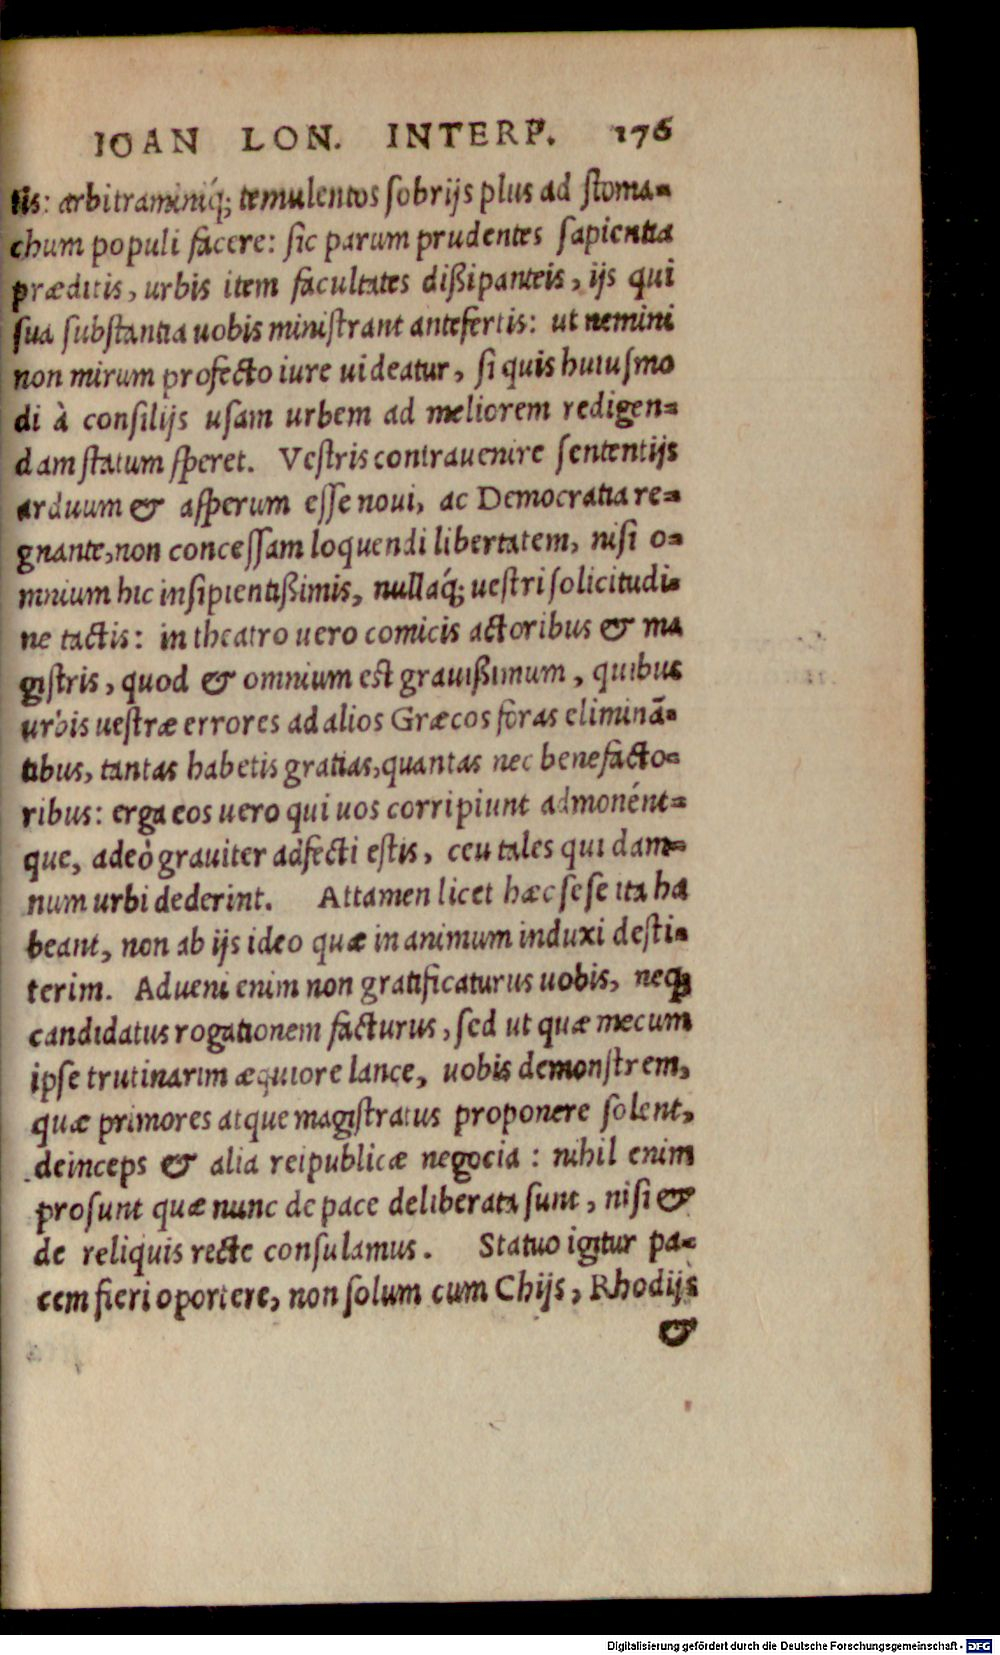 IOAN LON. INTERP. 176
tis: arbitraminiq́; temulentos ſobrijs plus ad ſtoma=
chum populi facere: ſic parum prudentes ſapientia
præditis, urbis item facultates dißipanteis, ijs qui
ſua ſubſtantia uobis miniſtrant antefertis: ut nemini
non mirum profecto iure uideatur, ſi quis huiuſmo
di à conſilijs uſam urbem ad meliorem redigen=
dam ſtatum ſperet. Veſtris contrauenire ſententijs
arduum & aſperum eſſe noui, ac Democratia re=
gnante, non conceſſam loquendi libertatem, niſi o=
mnium hic inſipientißimis, nullaq́; ueſtri ſolicitudi=
ne tactis: in theatro uero comicis actoribus & ma
giſtris, quod & omnium eſt grauißimum, quibus
urbis ueſtræ errores ad alios Græcos foras eliminã=
tibus, tantas habetis gratias, quantas nec benefacto=
ribus: erga eos uero qui uos corripiunt admonént=
que, adeò grauiter adfecti eſtis, ceu tales qui dam=
num urbi dederint. Attamen licet hæc ſeſe ita ha
beant, non ab ijs ideo quæ in animum induxi deſti=
terim. Adueni enim non gratificaturus uobis, neq;
candidatus rogationem facturus, ſed ut quæ mecum
ipſe trutinarim æquiore lance, uobis demonſtrem,
quæ primores atque magiſtratus proponere ſolent,
deinceps & alia reipublicæ negocia : nihil enim
proſunt quæ nunc de pace deliberata ſunt, niſi &
de reliquis recte conſulamus. Statuo igitur pa=
cem fieri oportere, non ſolum cum Chijs, Rhodijs
&
Digitalisierung gefördert durch die Deutsche Forschungsgemeinschaft - DFG